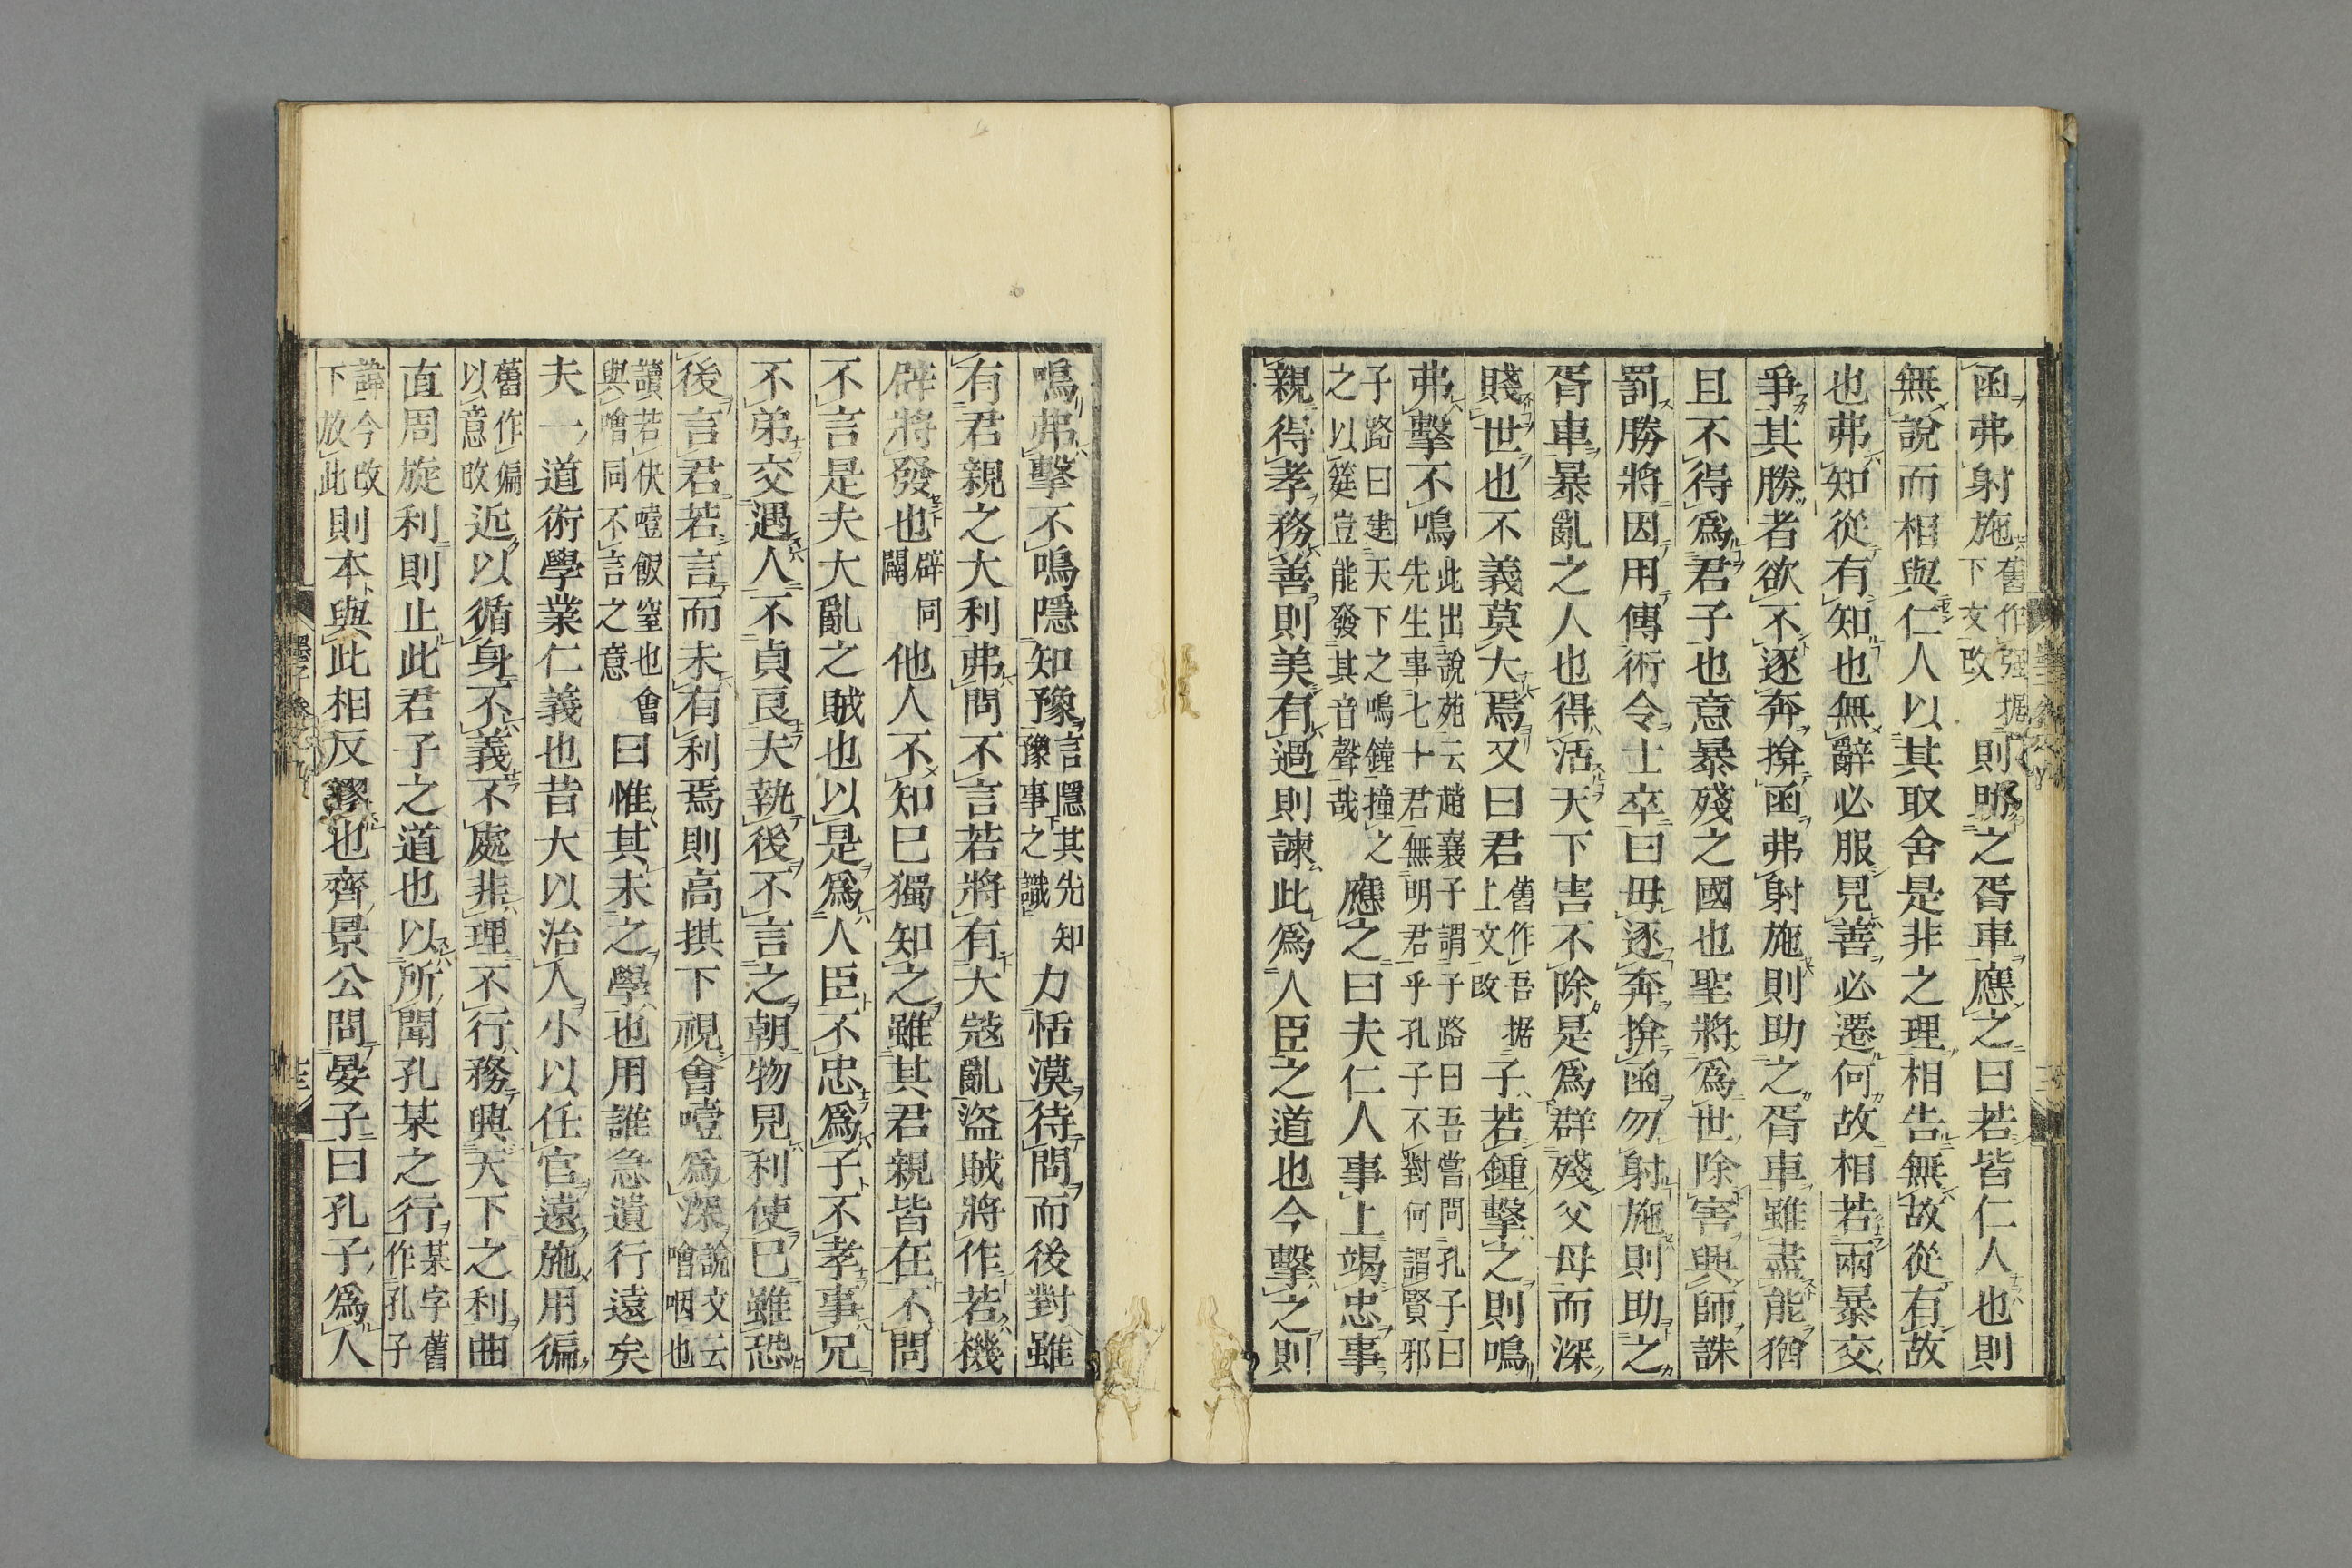 函弗射施舊作强据下文改則助之胥車應之曰若皆仁人也則
無說而相與仁人以其取舍是非之理相告無故從有故
也弗知從有知也無辭必服見善必遷何故相若兩暴交
爭其勝者欲不逐奔揜函弗射施則助之胥車雖盡能猶
且不得爲君子也意暴殘之國也聖將爲世除害興師誅
罰勝將因用傳術令士卒曰毋逐奔揜函勿射施則助之
胥車暴亂之人也得活天下害不除是爲群殘父母而深
賤世也不義莫大焉又曰君舊作吾据上文改子若鍾擊之則鳴
弗擊不鳴此出說苑云趙襄子謂子路曰吾嘗問孔子曰先生事七十君無明君乎孔子不對何謂賢邪
子路曰建天下之鳴鐘撞之之以筳豈能發其音聲哉應之曰夫仁人事上竭忠事
親得孝務善則美有過則諫此爲人臣之道也今擊之則
鳴弗擊不鳴隱知豫言隱其先知豫事之識力恬漠待問而後對雖
有君親之大利弗問不言若將有大寇亂盜賊將作若機
辟將發也辟同闢他人不知已獨知之雖其君親皆在不問
不言是夫大亂之賊也以是爲人臣不忠爲子不孝事兄
不弟交遇人不貞良夫執後不言之朝物見利使已雖恐
後言君若言而未有利焉則高拱下視會噎爲深說文云噲咽也
讀若快噎飯窒也會與噲同不言之意曰惟其未之學也用誰急遺行遠矣
夫一道術學業仁義也昔大以治人小以任官遠施用徧
舊作偏以意改近以循身不義不處非理不行務興天下之利曲
直周旋利則止此君子之道也以所聞孔某之行某字舊作孔子
諱今改下放此則本與此相反謬也齊景公問晏子曰孔子爲人